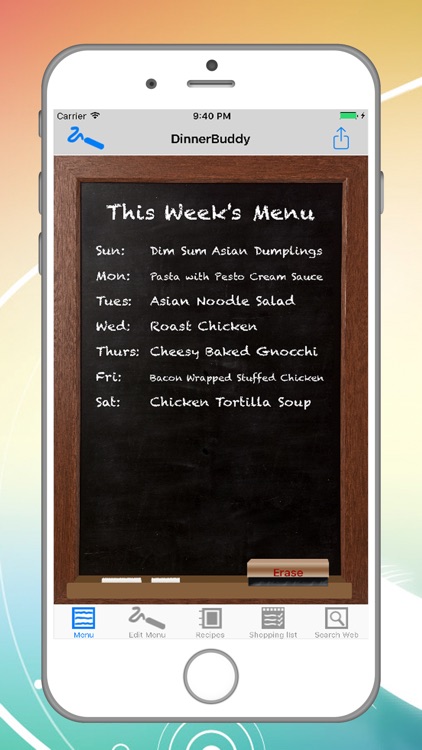 Carrier 9:40 PM
DinnerBuddy
This Week's Menu
Sun: Dim Sum Asian Dumplings
Mon: Pasta with Pesto Cream Sauce
Tues: Asian Noodle Salad
Wed: Roast Chicken
Thurs: Cheesy Baked Gnocchi
Fri: Bacon Wrapped Stuffed Chicken
Sat: Chicken Tortilla Soup
Erase
Menu Edit Menu Recipes Shopping list Search Web